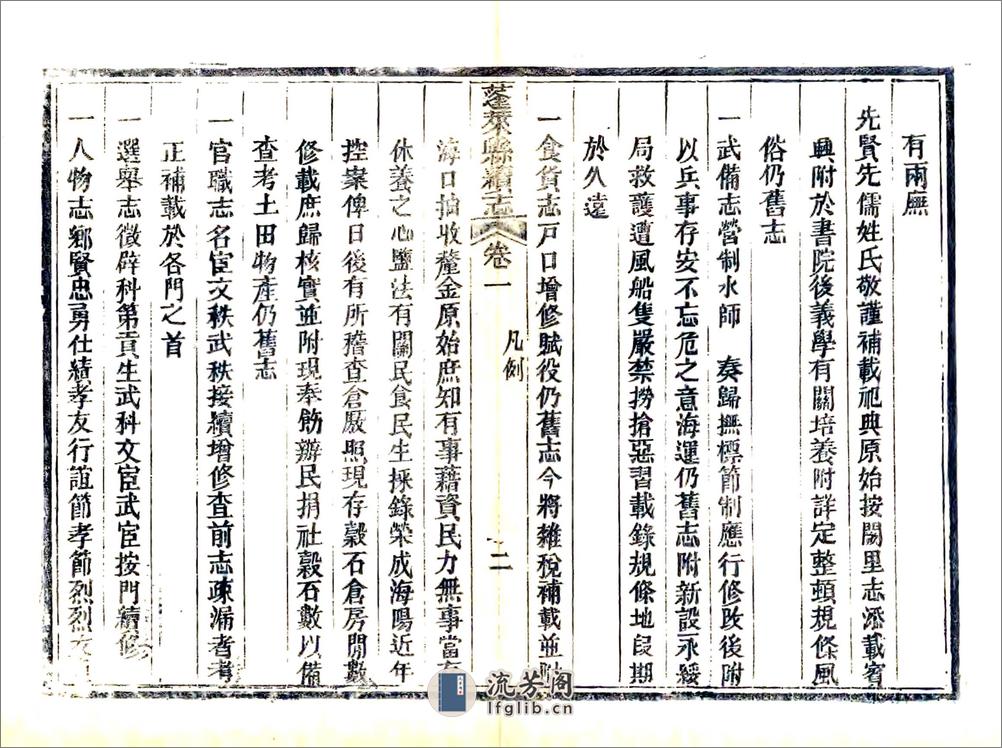 有兩廡
先賢先儒姓氏敬謹補載祀典原始按闕里志添載賓
興附於書院後義學有關培養附詳定整頓規條風
俗仍舊志
一武備志營制水師　奏歸撫標節制應行修改後附
以兵事存安不忘危之意海運仍舊志附新設永綏
局救護遭風船隻嚴禁撈搶惡習載錄規條地段期
於久遠
一食貨志戶口增修賦役仍舊志今將雜稅補載並附
蓬萊縣續志
卷一
凡例
二
海口抽收釐金原始庶知有事藉資民力無事當存
休養之心鹽法有關民食民生採錄榮成海陽近年
控案俾日後有所稽查倉廒照現存穀石倉房間數
修載庶歸核實並附現奉飭辦民捐社穀石數以備
查考土田物產仍舊志
一官職志名宦文秩武秩接續增修查前志疎漏者考
正補載於各門之首
一選舉志徵辟科第貢生武科文宦武宦按門續修
一人物志鄉賢忠勇仕績孝友行誼節孝節烈烈女
流芳阁
lfglib.cn